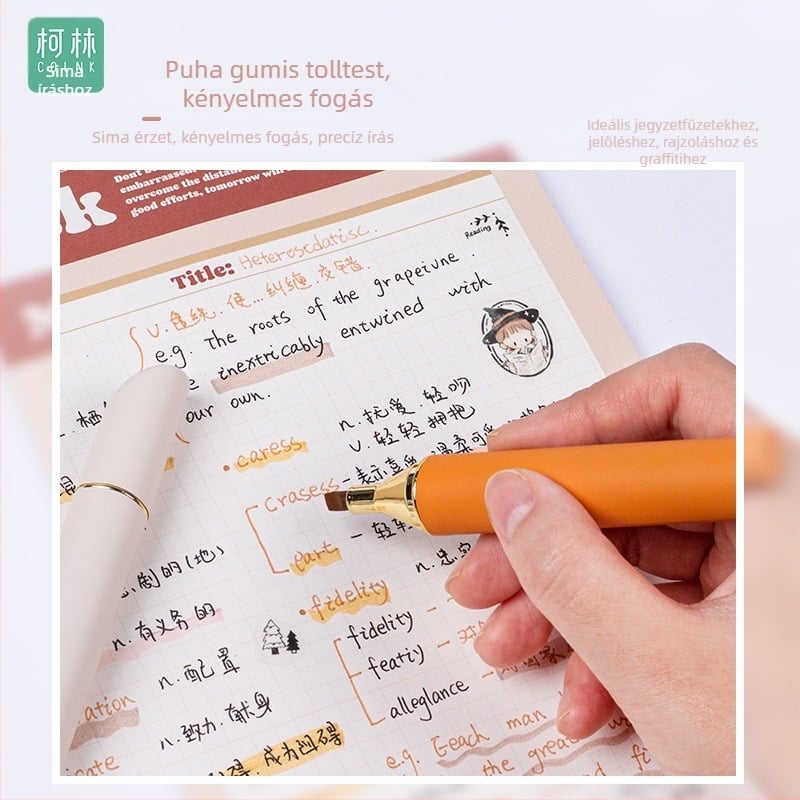 柯林
COLNK
Sima
íráshoz
Puha gumis tolltest,
kényelmes fogás
Sima érzet, kényelmes fogás, precíz írás
Ideális jegyzetfüzetekhez,
jelöléshez, rajzoláshoz és
graffitihez
embarrassen
overcome the distan
good efforts, tomorrow will
Reading
Title: Heteroscdatisc.
v. 使...纠缠.交错.
e.g. The roots of the grapeiune.
e inextricably entwined with
our own.
n. 抚爱.轻吻
v. 轻轻拥抱
caress
crasess
part
fidelity
n. 有义务的
fidelity
n. 配置
featiy
alleglance
n. 致力.献身
ation
成为阻碍
e.g. Geach man
cate
the great